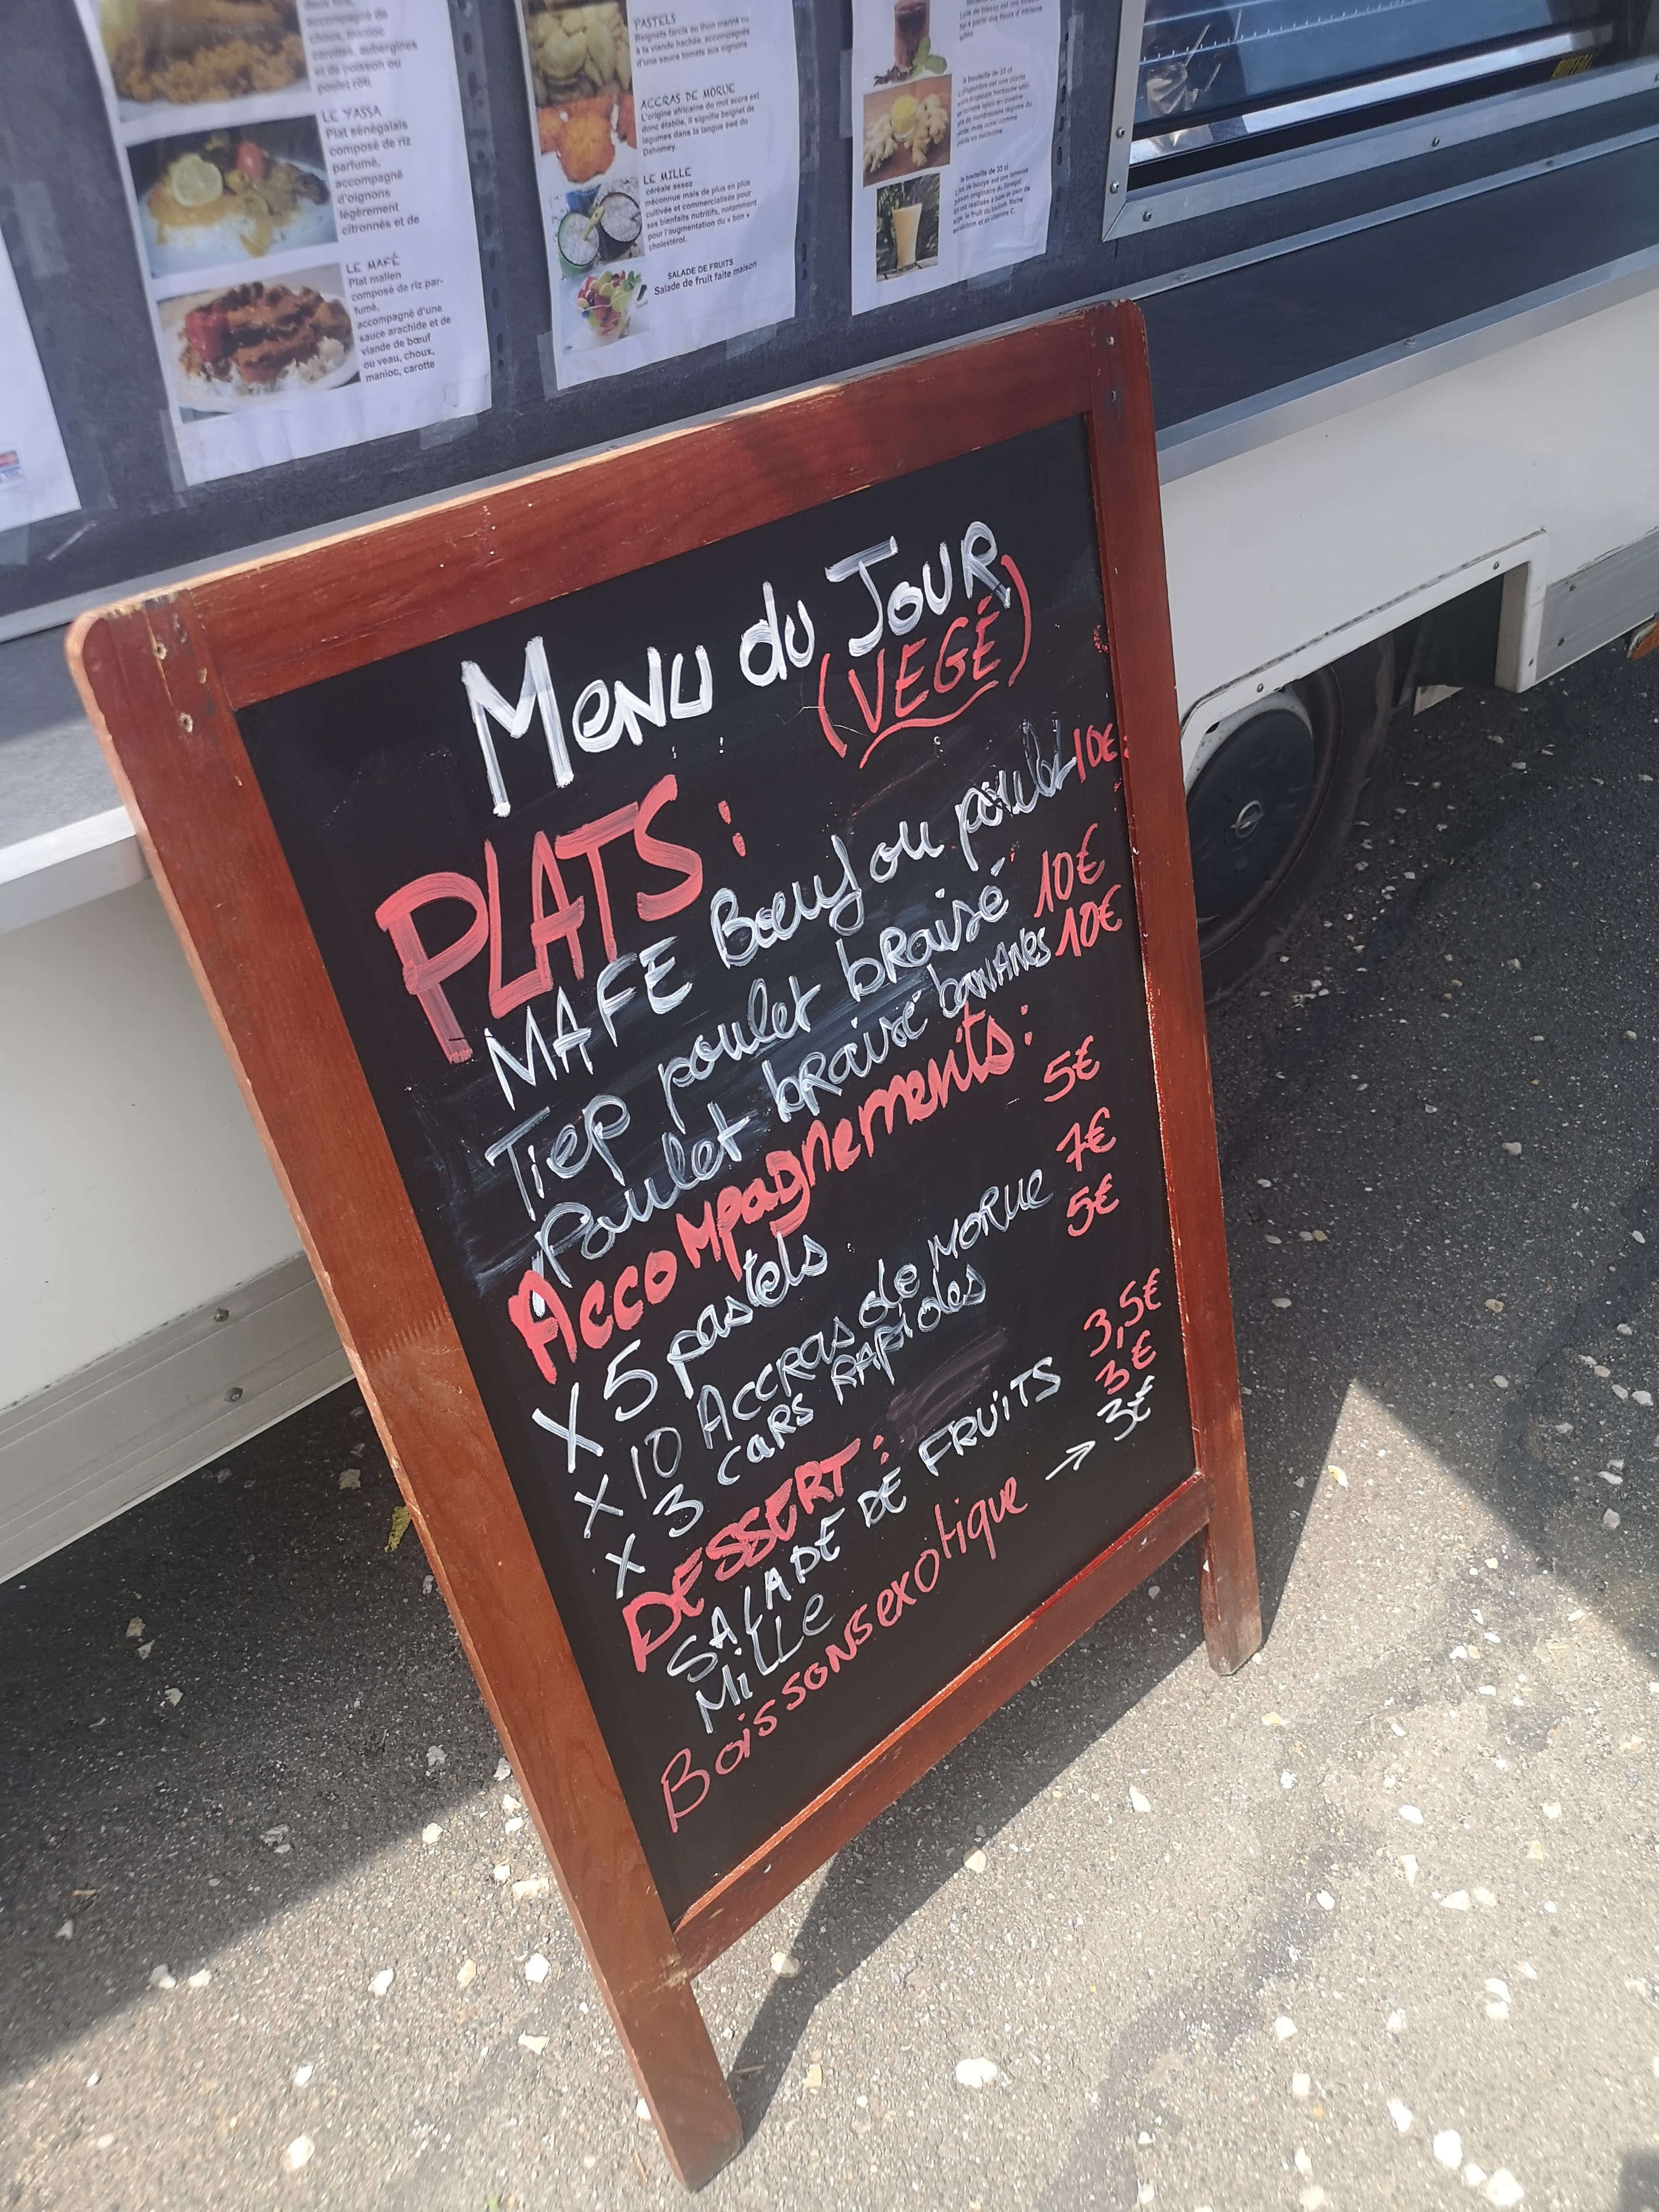 deux fois,
accompagné de
choux, manioc
carottes, aubergines
et de poisson ou
poulet rôti
LE YASSA
Plat sénégalais
composé de riz
parfumé,
accompagné
d'oignons
légèrement
citronnés et de
LE MAFÉ
Plat malien
composé de riz par-
fumé,
accompagné d'une
sauce arachide et de
viande de bœuf
ou veau, choux,
manioc, carotte
PASTELS
Beignets farcis au thon mariné ou
à la viande hachée, accompagnés
d'une sauce tomate aux oignons
ACCRAS DE MORUE
L'origine africaine du mot accra est
donc établie, il signifie beignet de
légumes dans la langue éwé du
Dahomey.
LE MILLE
céréale assez
méconnue mais de plus en plus
cultivée et commercialisée pour
ses bienfaits nutritifs, notamment
pour l'augmentation du « bon »
cholestérol.
SALADE DE FRUITS
Salade de fruit faite maison
la bouteille de 33 cl
la bouteille de 33 cl
Menu du JOUR
(VEGÉ)
PLATS :
MAFE Bœuf ou poulet 10€
Tiep poulet braisé 10€
Poulet braisé bananes 10€
Accompagnements :
X 5 pastels 5€
X 10 Accras de MORUE 7€
X 3 CARS RAPIDES 5€
DESSERT :
SALADE DE FRUITS 3,5€
MiLLe 3€
Boissons exotique → 3€